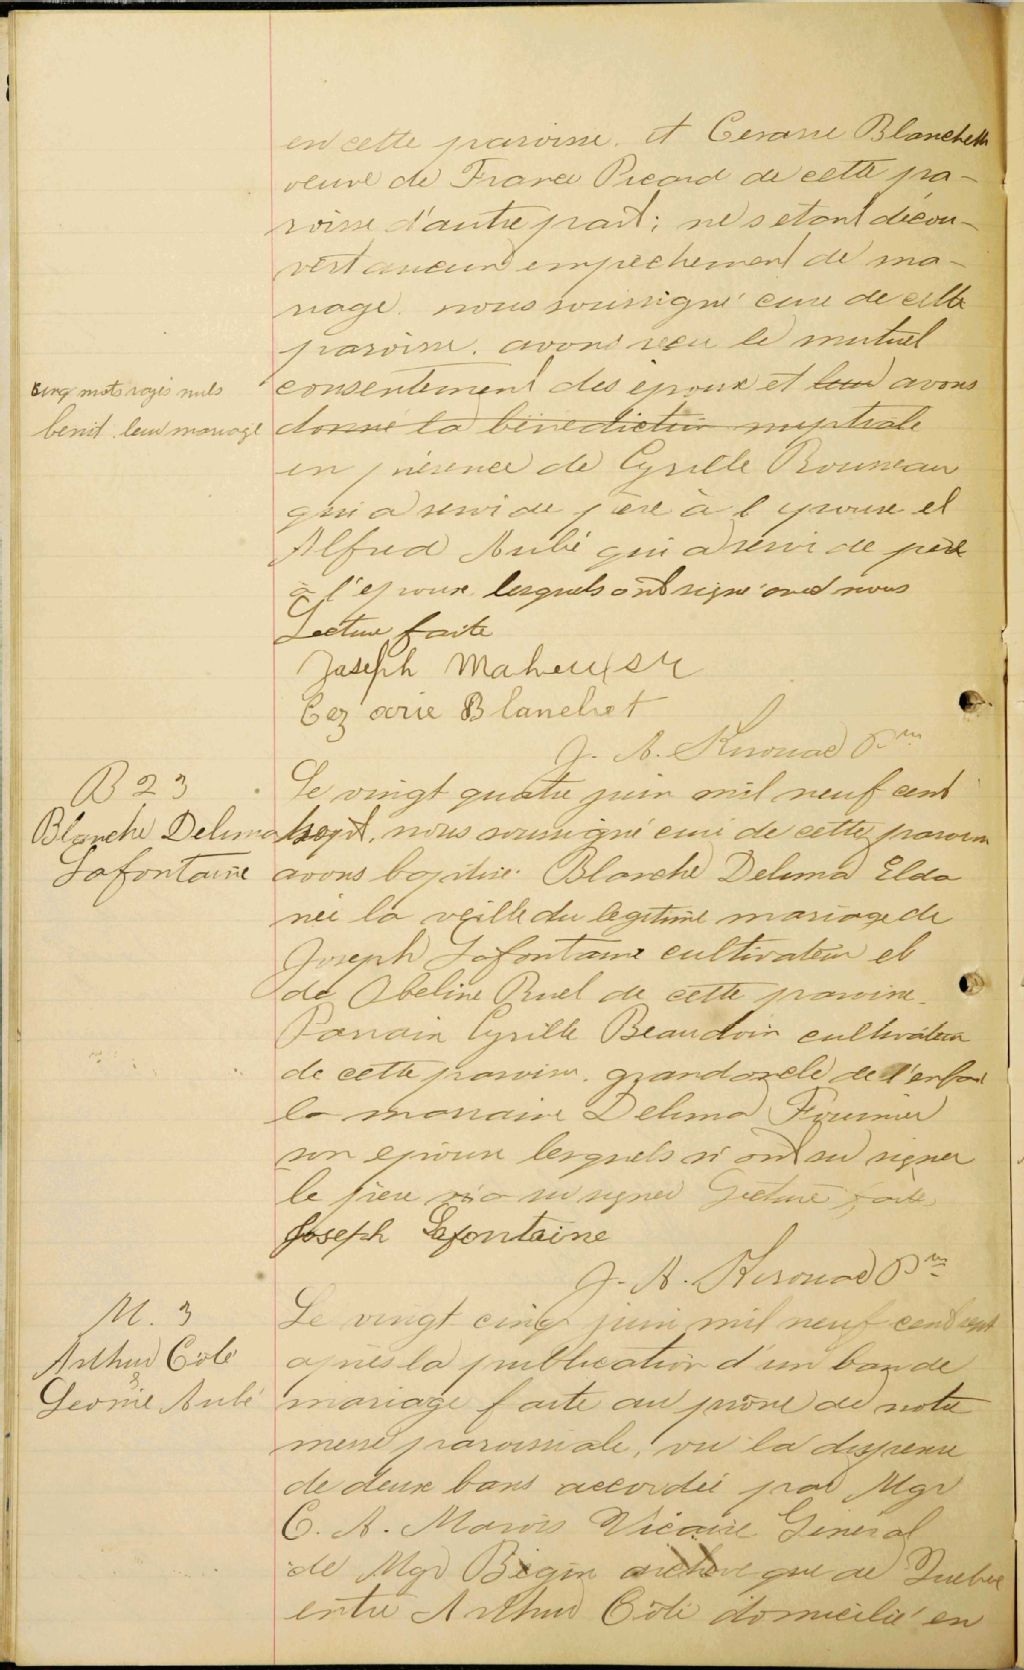 en cette paroisse. et Cesarie Blanchette
veuve de France Picard de cette pa-
roisse d'autre part; ne s etant décou-
vert aucun empechement de ma-
riage. nous soussigné curé de cette
paroisse. avons reçu le mutuel
consentement des époux et leur avons
donné la bénédiction nuptiale
cinq mots rayés nuls
benit leur mariage
en présence de Cyrille Rousseau
qui a servi de père à l epouse et
Alfred Aubé qui a servi de père
à l'epoux lesquels ont signé avec nous
Lecture faite
Joseph Maheux sr
Cezarie Blanchet
J. A. Kirouac Ptre
B 23
Blanche Delima
Lafontaine
Le vingt quatre juin mil neuf cent
sept, nous soussigné curé de cette paroisse
avons baptisé Blanche Delima Elda
née la veille du legitime mariage de
Joseph Lafontaine cultivateur et
de Obeline Ruel de cette paroisse.
Parrain Cyrille Beaudoin cultivateur
de cette paroisse. grandoncle de l'enfant
la marraine Delima Fournier
son epouse lesquels n' ont su signer
le père a su signer Lecture faite
Joseph Lafontaine
J. A. Kirouac Ptre
M. 3
Arthur Coté
&
Leonie Aubé
Le vingt cinq juin mil neuf cent sept
après la publication d'un ban de
mariage faite au prone de notre
messe paroissiale, vu la dispense
de deux bans accordée par Mgr
C. A. Marois Vicaire Général
de Mgr Bégin archeveque de Quebec
entre Arthur Coté domicilié en